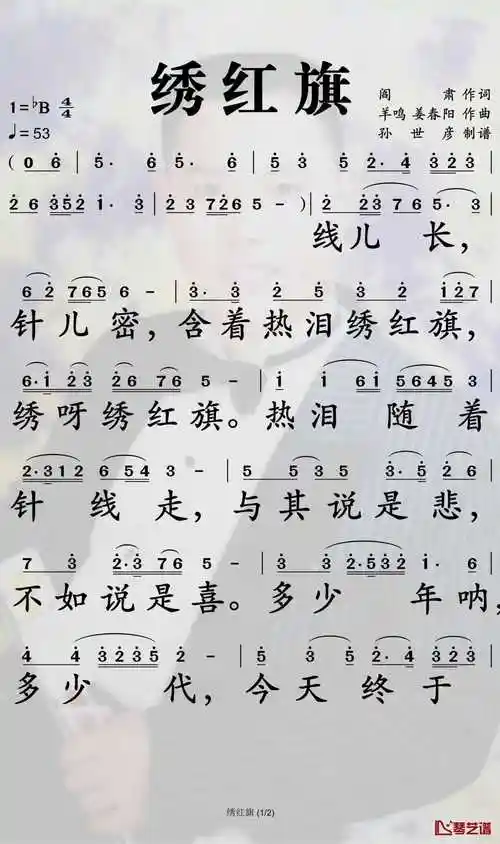 绣红旗
1=♭B 4/4
♩=53
阎 肃 作词
羊鸣 姜春阳 作曲
孙世彦 制谱
(0 6 | 5· 6 5· 3 | 5 3 2· 4 3 2 3 |
2 6 3 5 2 1· 3 | 2 3 7 2 6 5 - ) | 2 2 3 7 6 5· 3 |
线儿 长,
6 2 7 6 5 6 - | 3· 3 2 5 3 2 1 2 7 |
针儿密,含着热泪绣红旗,
6· 1 2 3 2 6 7 6 5 - | 1 1 6 1 5 6 4 5 3 |
绣呀绣红旗。热泪 随着
2· 3 1 2 6 5 4 3 - | 5 5 3 5 2· 6 |
针 线走,与其说是悲,
7 3 2· 3 7 6 5 - | 3 3 2· 5 3 2 1· 6 |
不如说是喜。多少 年呐,
4 4 3 2 3 5 2 - | 5 3 5 2· 4 3 2 3 |
多少 代,今天终于
绣红旗 (1/2)
琴艺谱